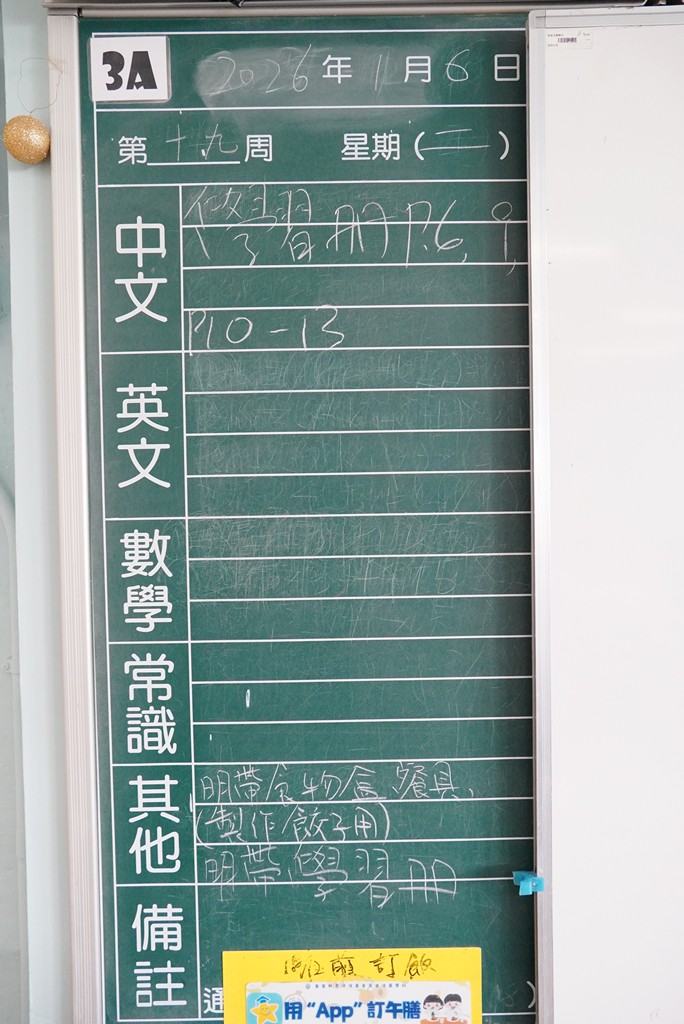 3A
2026年1月6日
第十九周 星期(二)
中文
學習冊P.6, 9,
P10-13
英文
數學
常識
其他
明帶食物盒、餐具,
(製作餃子用)
明帶學習冊
備註
訂飯
通
用“App”訂午膳